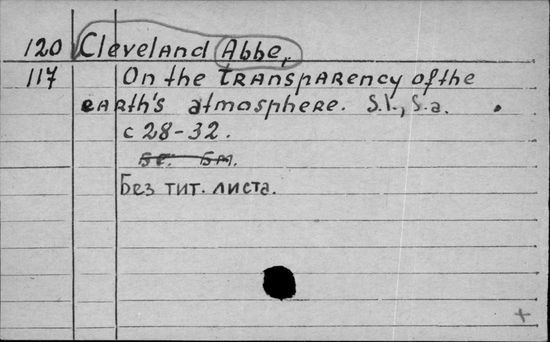 120 Cleveland Abbe,
117 On the transparency of the
earth's atmosphere. S.l., S.a.
c 28-32.
Без тит. листа.